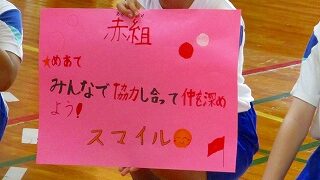 赤組
★めあて
みんなで協力し合って仲を深め
よう!
スマイル